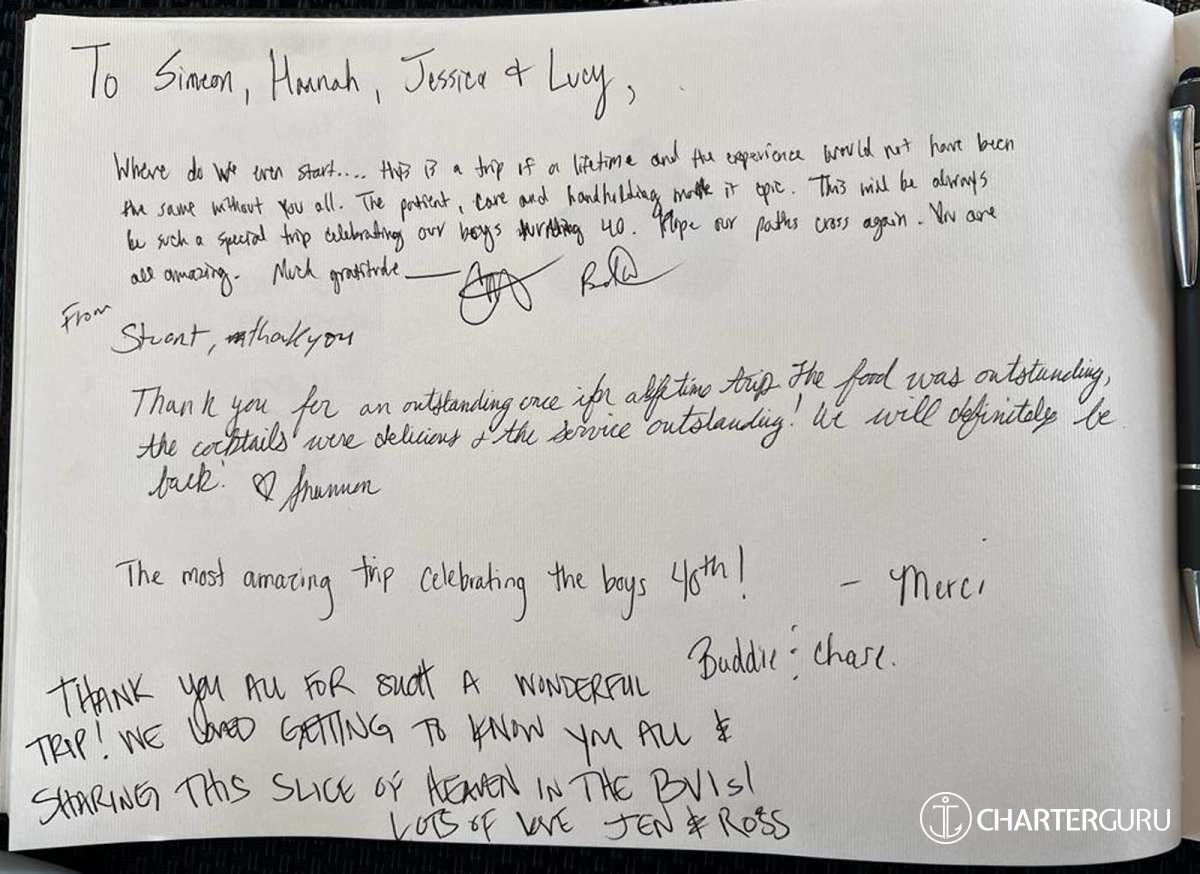 To Simeon, Hannah, Jessica & Lucy,
Where do we even start.... this is a trip of a lifetime and the experience would not have been
the same without you all. The patient, care and handholding made it epic. This will be always
be such a special trip celebrating our boys turning 40. Hope our paths cross again. You are
all amazing. Much gratitude
From
Stuart, thankyou
Thank you for an outstanding once a lifetime trip. The food was outstanding,
the cocktails were delicious & the service outstanding! We will definitely be
back! ♡ Shannon
The most amazing trip celebrating the boys 40th! - Merci
Buddie & Chase.
THANK YOU ALL FOR SUCH A WONDERFUL
TRIP! WE LOVED GETTING TO KNOW YOU ALL &
SHARING THIS SLICE OF HEAVEN IN THE BVIs!
LOTS OF LOVE JEN & ROSS
CHARTERGURU